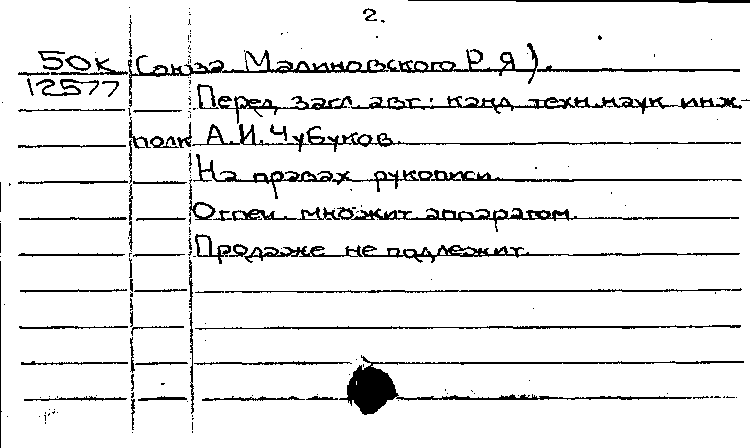 2.
50к Союза Малиновского Р.Я).
12577 Перед загл. авт.: канд техн.наук инж-
полк А.И.Чубуков.
На правах рукописи.
Отпеч. множит аппаратом.
Продаже не подлежит.